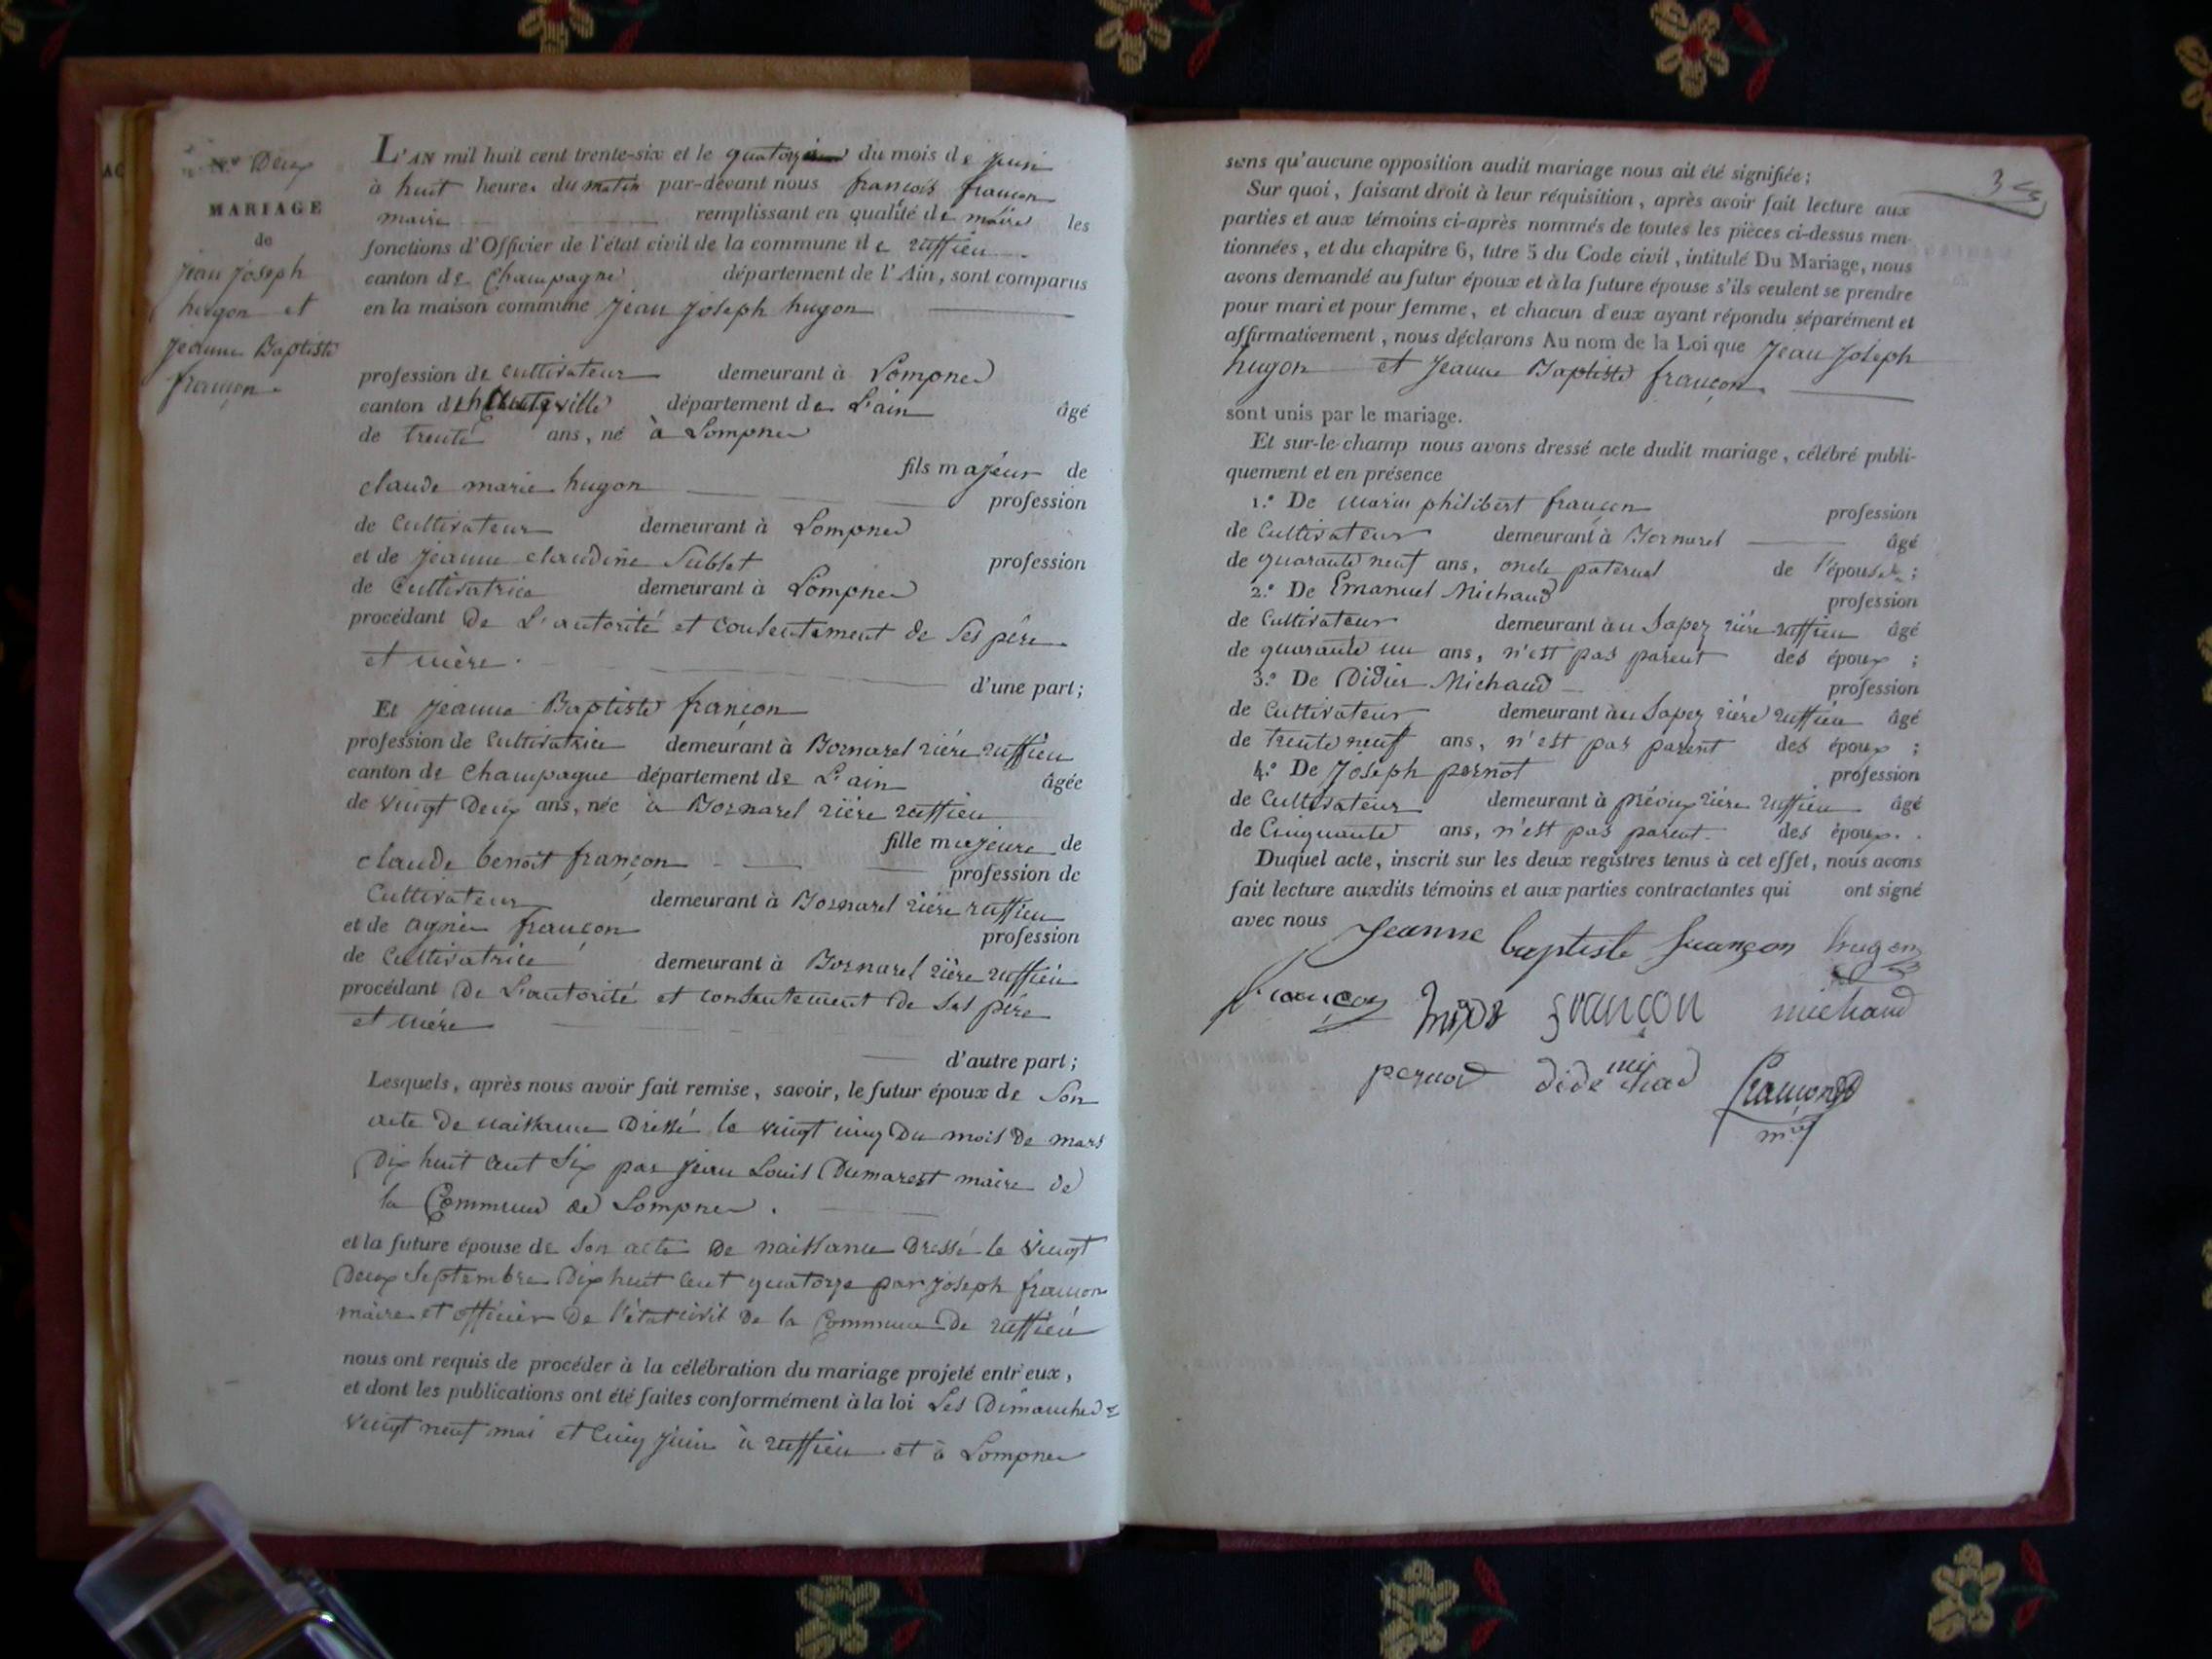 N.º Deux
MARIAGE
de
jean joseph
hugon et
jeanne Baptiste
françon.
L'AN mil huit cent trente-six et le du mois de juin
à huit heures du matin par-devant nous françois françon
maire remplissant en qualité de maire les
fonctions d'Officier de l'état civil de la commune de ruffieu
canton de Champagne département de l'Ain, sont comparus
en la maison commune jean joseph hugon
profession de cultivateur demeurant à Lompnes
canton d'hauteville département de L'ain âgé
de trente ans, né à Lompnes
fils majeur de
claude marie hugon profession
de Cultivateur demeurant à Lompnes
et de jeanne claudine Sublet profession
de Cultivatrice demeurant à Lompnes
procédant De L'autorité et consentement de ses père
et mère.
d'une part;
Et jeanne Baptiste françon
profession de Cultivatrice demeurant à Bornarel rière ruffieu
canton de Champagne département de L'ain âgée
de vingt Deux ans, née à Bornarel rière ruffieu
fille majeure de
claude benoit françon profession de
Cultivateur demeurant à Bornarel rière ruffieu
et de agnès françon profession
de Cultivatrice demeurant à Bornarel rière ruffieu
procédant De L'autorité et consentement de ses père
et mère
d'autre part;
Lesquels, après nous avoir fait remise, savoir, le futur époux de Son
acte De naissance Dressé le vingt cinq Du mois De mars
Dix huit cent Six par jean Louis Dumarest maire de
la Commune de Lompnes.
et la future épouse de Son acte De naissance Dressé le vingt
Deux Septembre Dix huit cent quatorze par joseph françon
maire et officier De l'état civil De la Commune De ruffieu
nous ont requis de procéder à la célébration du mariage projeté entr'eux,
et dont les publications ont été faites conformément à la loi Les Dimanches
vingt neuf mai et Cinq juin à ruffieu et à Lompnes
3
sans qu'aucune opposition audit mariage nous ait été signifiée;
Sur quoi, faisant droit à leur réquisition, après avoir fait lecture aux
parties et aux témoins ci-après nommés de toutes les pièces ci-dessus men-
tionnées, et du chapitre 6, titre 5 du Code civil, intitulé Du Mariage, nous
avons demandé au futur époux et à la future épouse s'ils veulent se prendre
pour mari et pour femme, et chacun d'eux ayant répondu séparément et
affirmativement, nous déclarons Au nom de la Loi que jean joseph
hugon et jeanne Baptiste françon
sont unis par le mariage.
Et sur-le-champ nous avons dressé acte dudit mariage, célébré publi-
quement et en présence
1.º De marin philibert françon profession
de Cultivateur demeurant à Bornarel âgé
de quarante neuf ans, oncle paternel de l'épouse;
2.º De Emanuel Michaud profession
de Cultivateur demeurant au Sapey rière ruffieu âgé
de quarante un ans, n'est pas parent des époux;
3.º De Didier Michaud profession
de Cultivateur demeurant au Sapey rière ruffieu âgé
de trente neuf ans, n'est pas parent des époux;
4.º De Joseph pernot profession
de Cultivateur demeurant à prévieux rière ruffieu âgé
de Cinquante ans, n'est pas parent des époux.
Duquel acte, inscrit sur les deux registres tenus à cet effet, nous avons
fait lecture auxdits témoins et aux parties contractantes qui ont signé
avec nous
Jeanne baptiste françon hugon
françon françon michaud
pernod dide michad françon